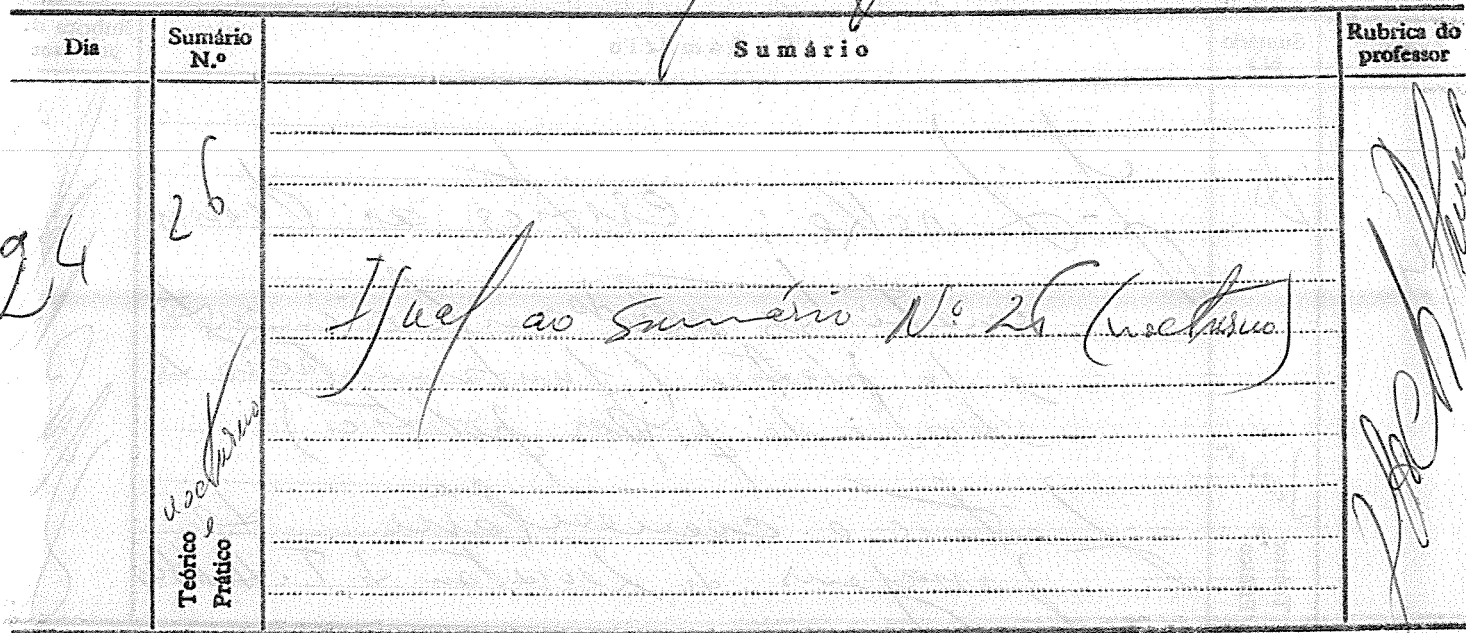 Dia
Sumário
N.º
Sumário
Rubrica do
professor
24
26
nocturno
Teórico
Prático
Igual ao Sumário Nº 26 (nocturno)